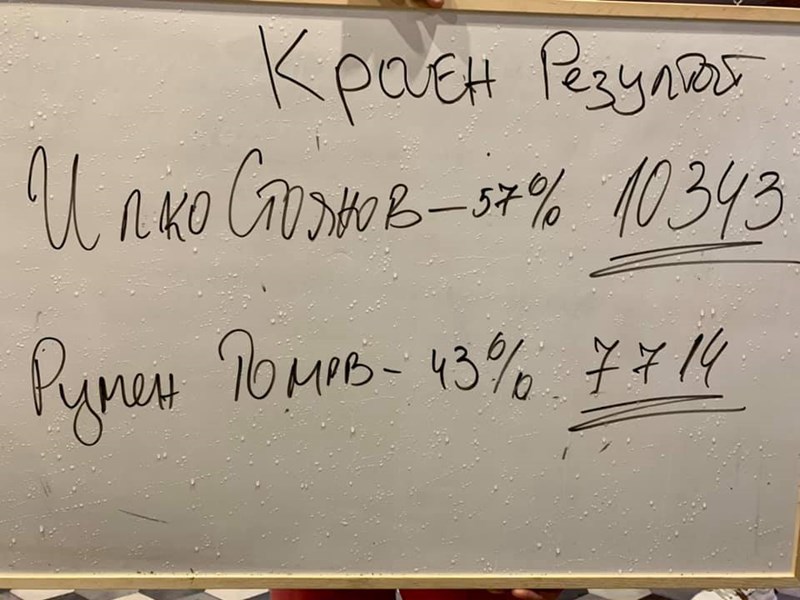 Краен Резултат
Илко Стоянов - 57% 10343
Румен Томов - 43% 7714